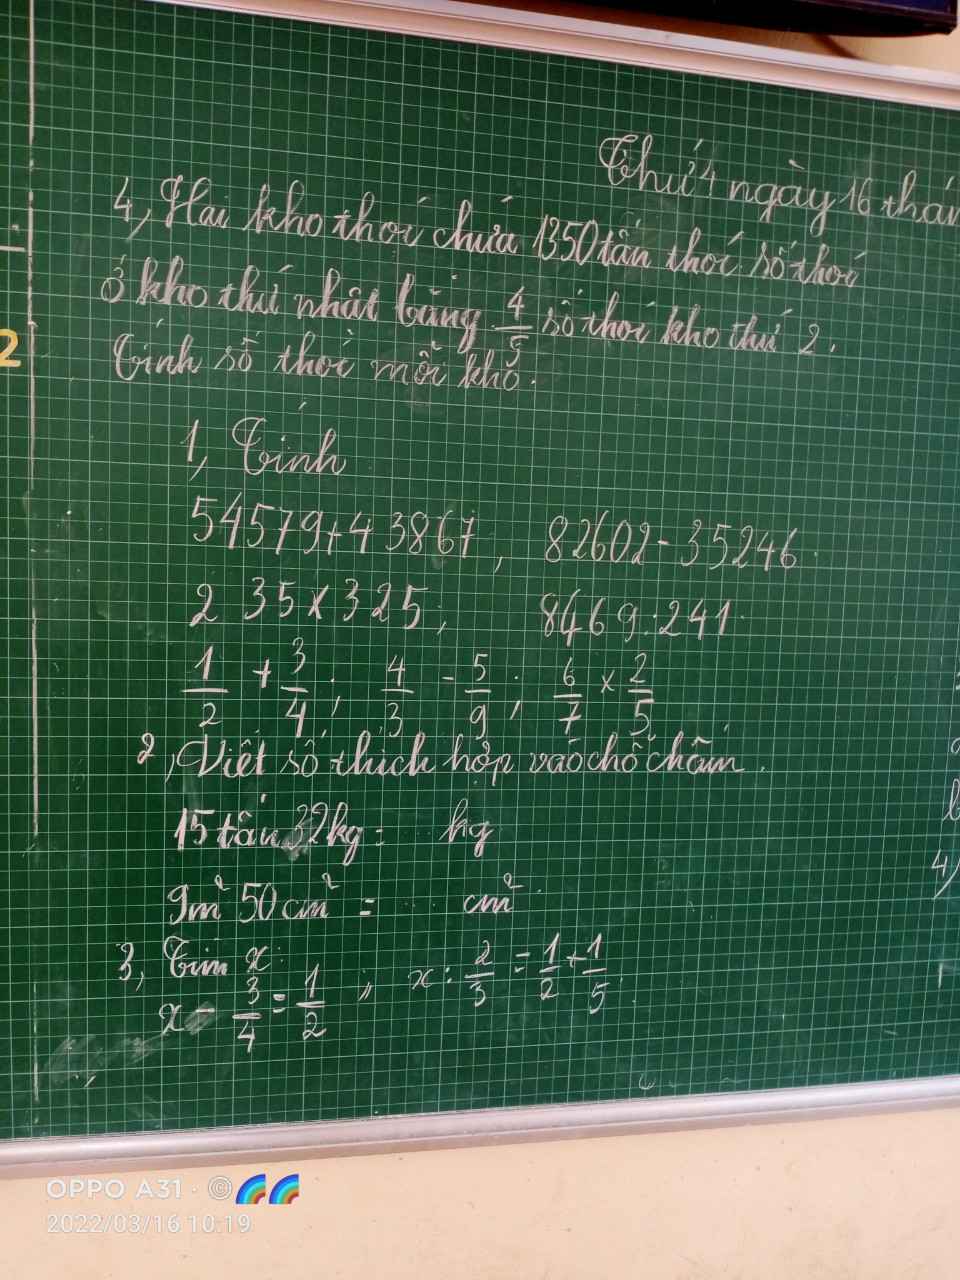 Thứ 4 ngày 16 thán
4, Hai kho thóc chứa 1350 tấn thóc số thóc
ở kho thứ nhất bằng 4/5 số thóc kho thứ 2.
Tính số thóc mỗi kho.
1, Tính
54579+43867, 82602-35246.
235×325; 8469:241.
1/2 + 3/4; 4/3 - 5/9; 6/7 × 2/5
2, Viết số thích hợp vào chỗ chấm.
15 tấn 32kg = ... kg
9m² 50cm² = ... cm²
3, Tìm x:
x - 3/4 = 1/2 ,, x : 2/3 = 1/2 + 1/5.
2
4)
OPPO A31 · ©🌈🌈
2022/03/16 10:19